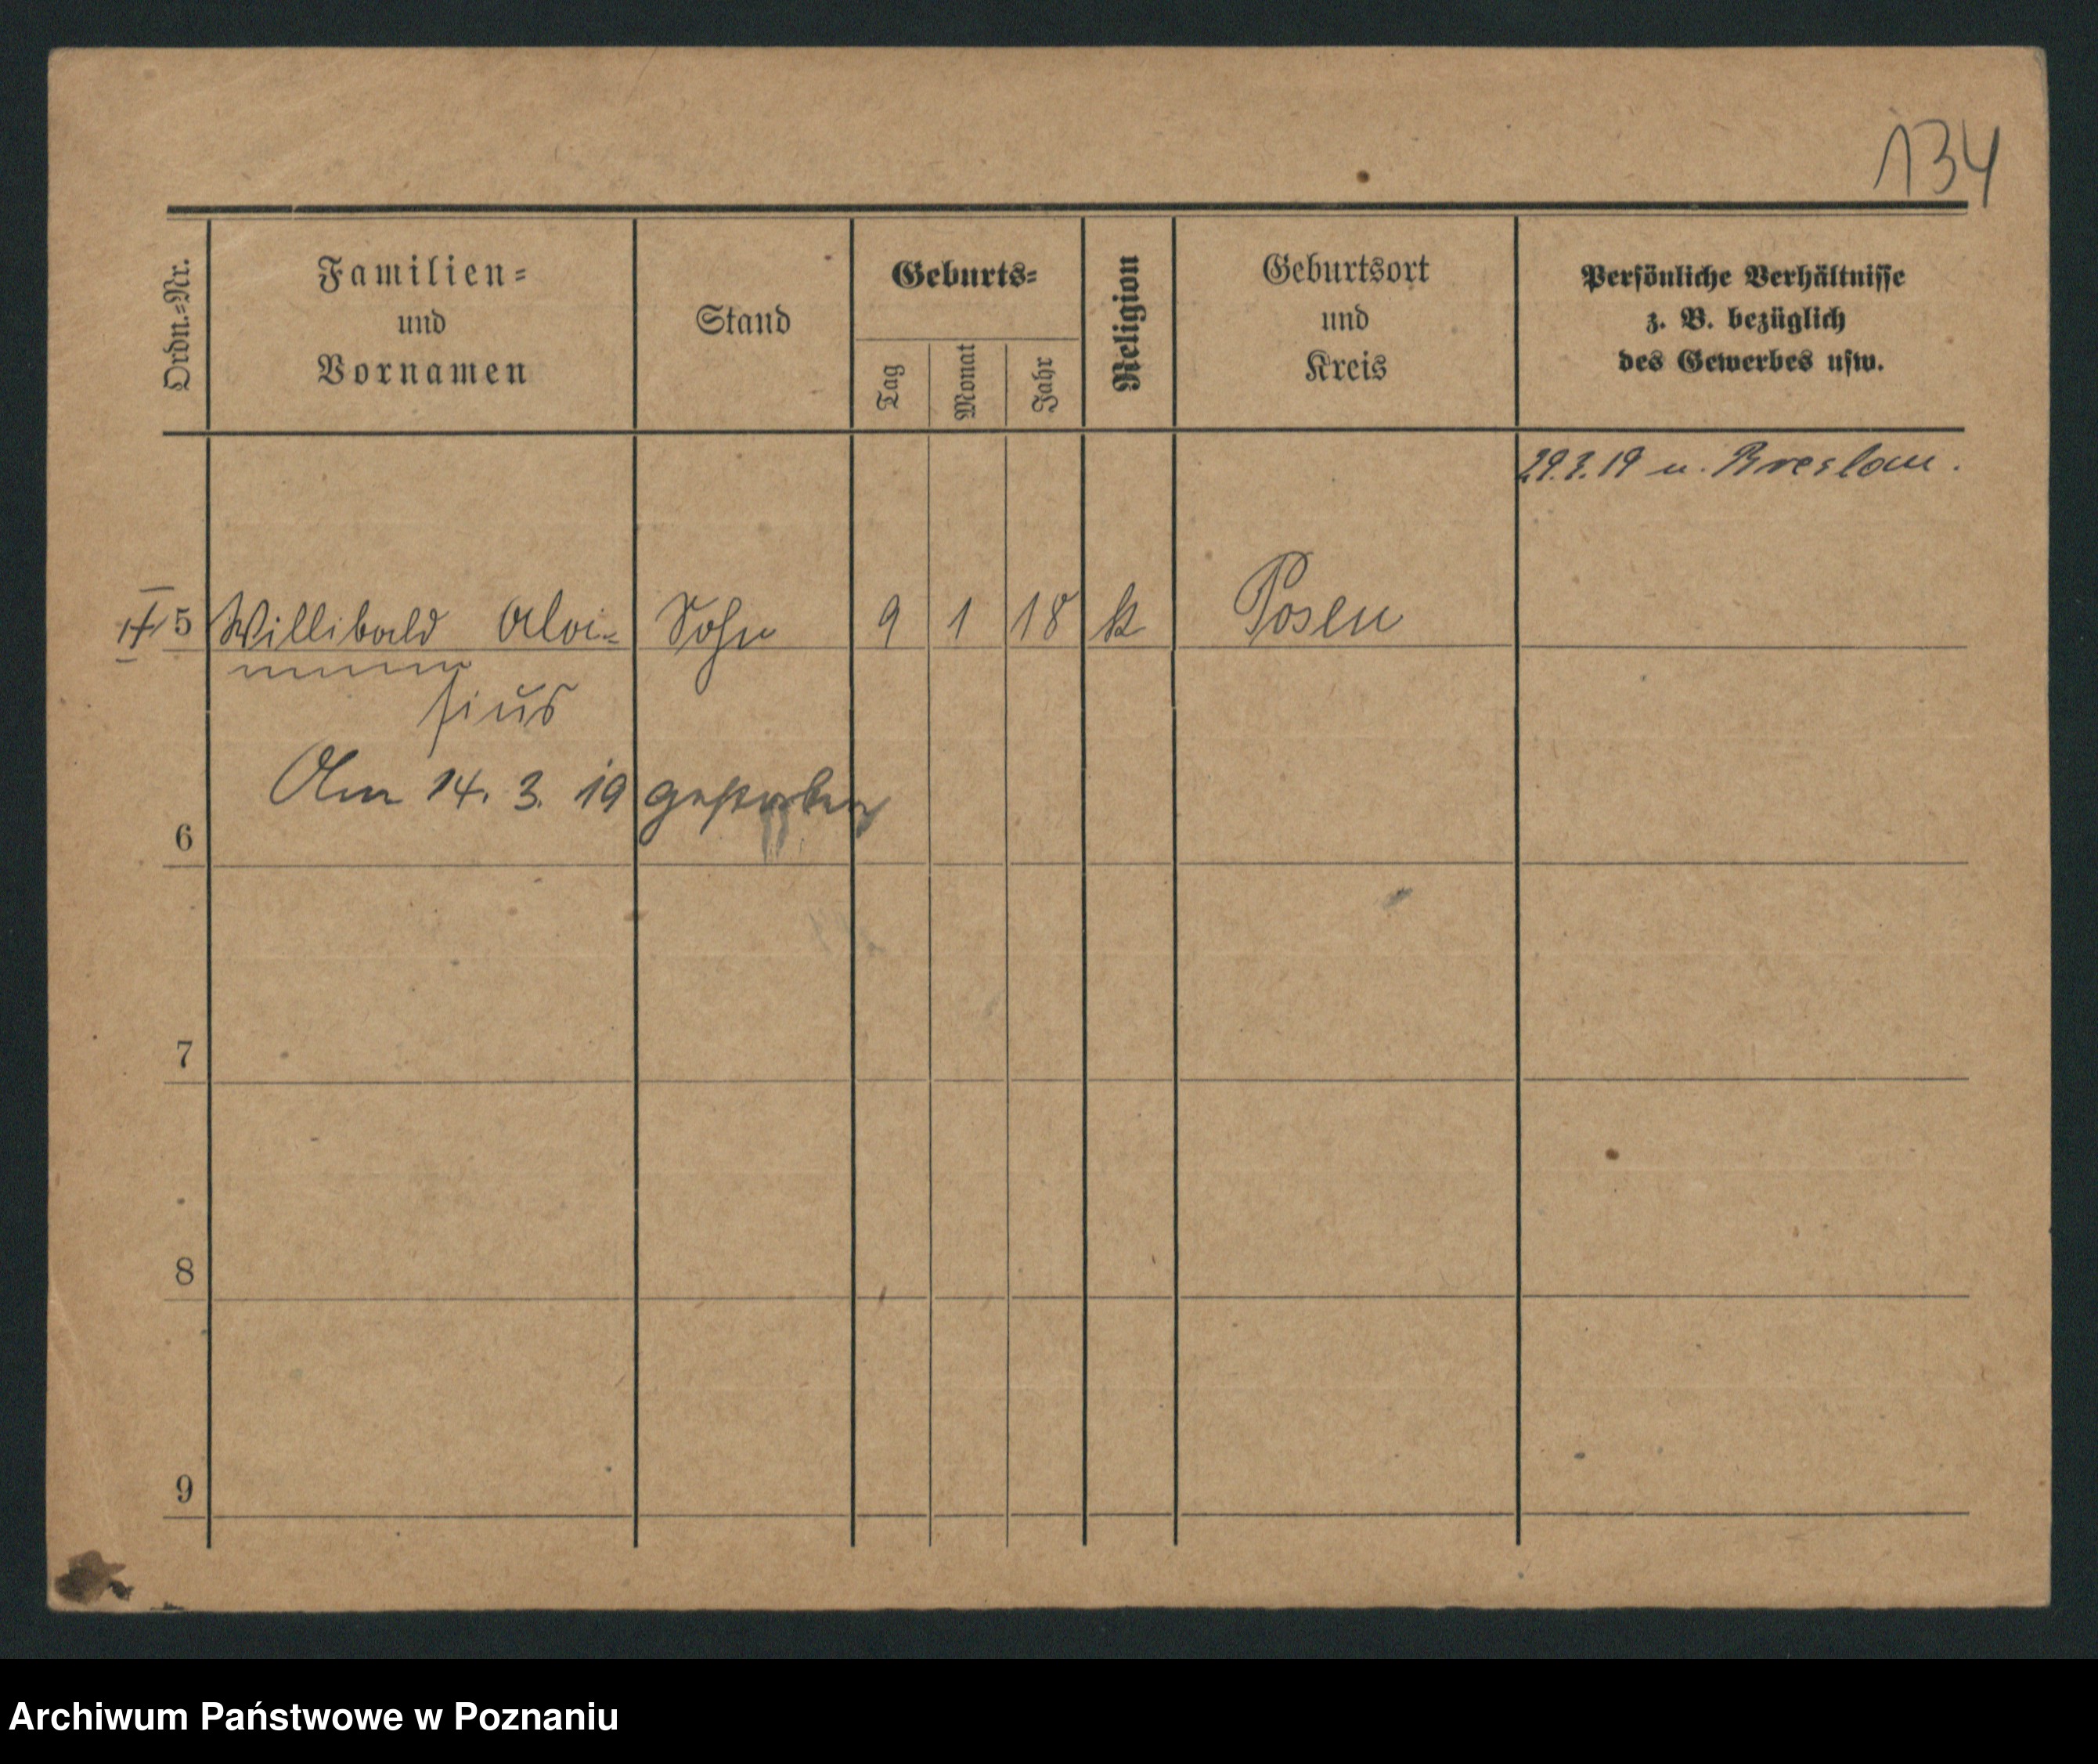 134
Ordn.=Nr.
Familien=
und
Vornamen
Stand
Geburts=
Tag
Monat
Jahr
Religion
Geburtsort
und
Kreis
Persönliche Verhältnisse
z. B. bezüglich
des Gewerbes usw.
19 n. Breslau.
5 Willibald Aloi= Sohn 9 1 18 k Posen
sius
Am 14. 3. 19 gestorben
6
7
8
9
Archiwum Państwowe w Poznaniu